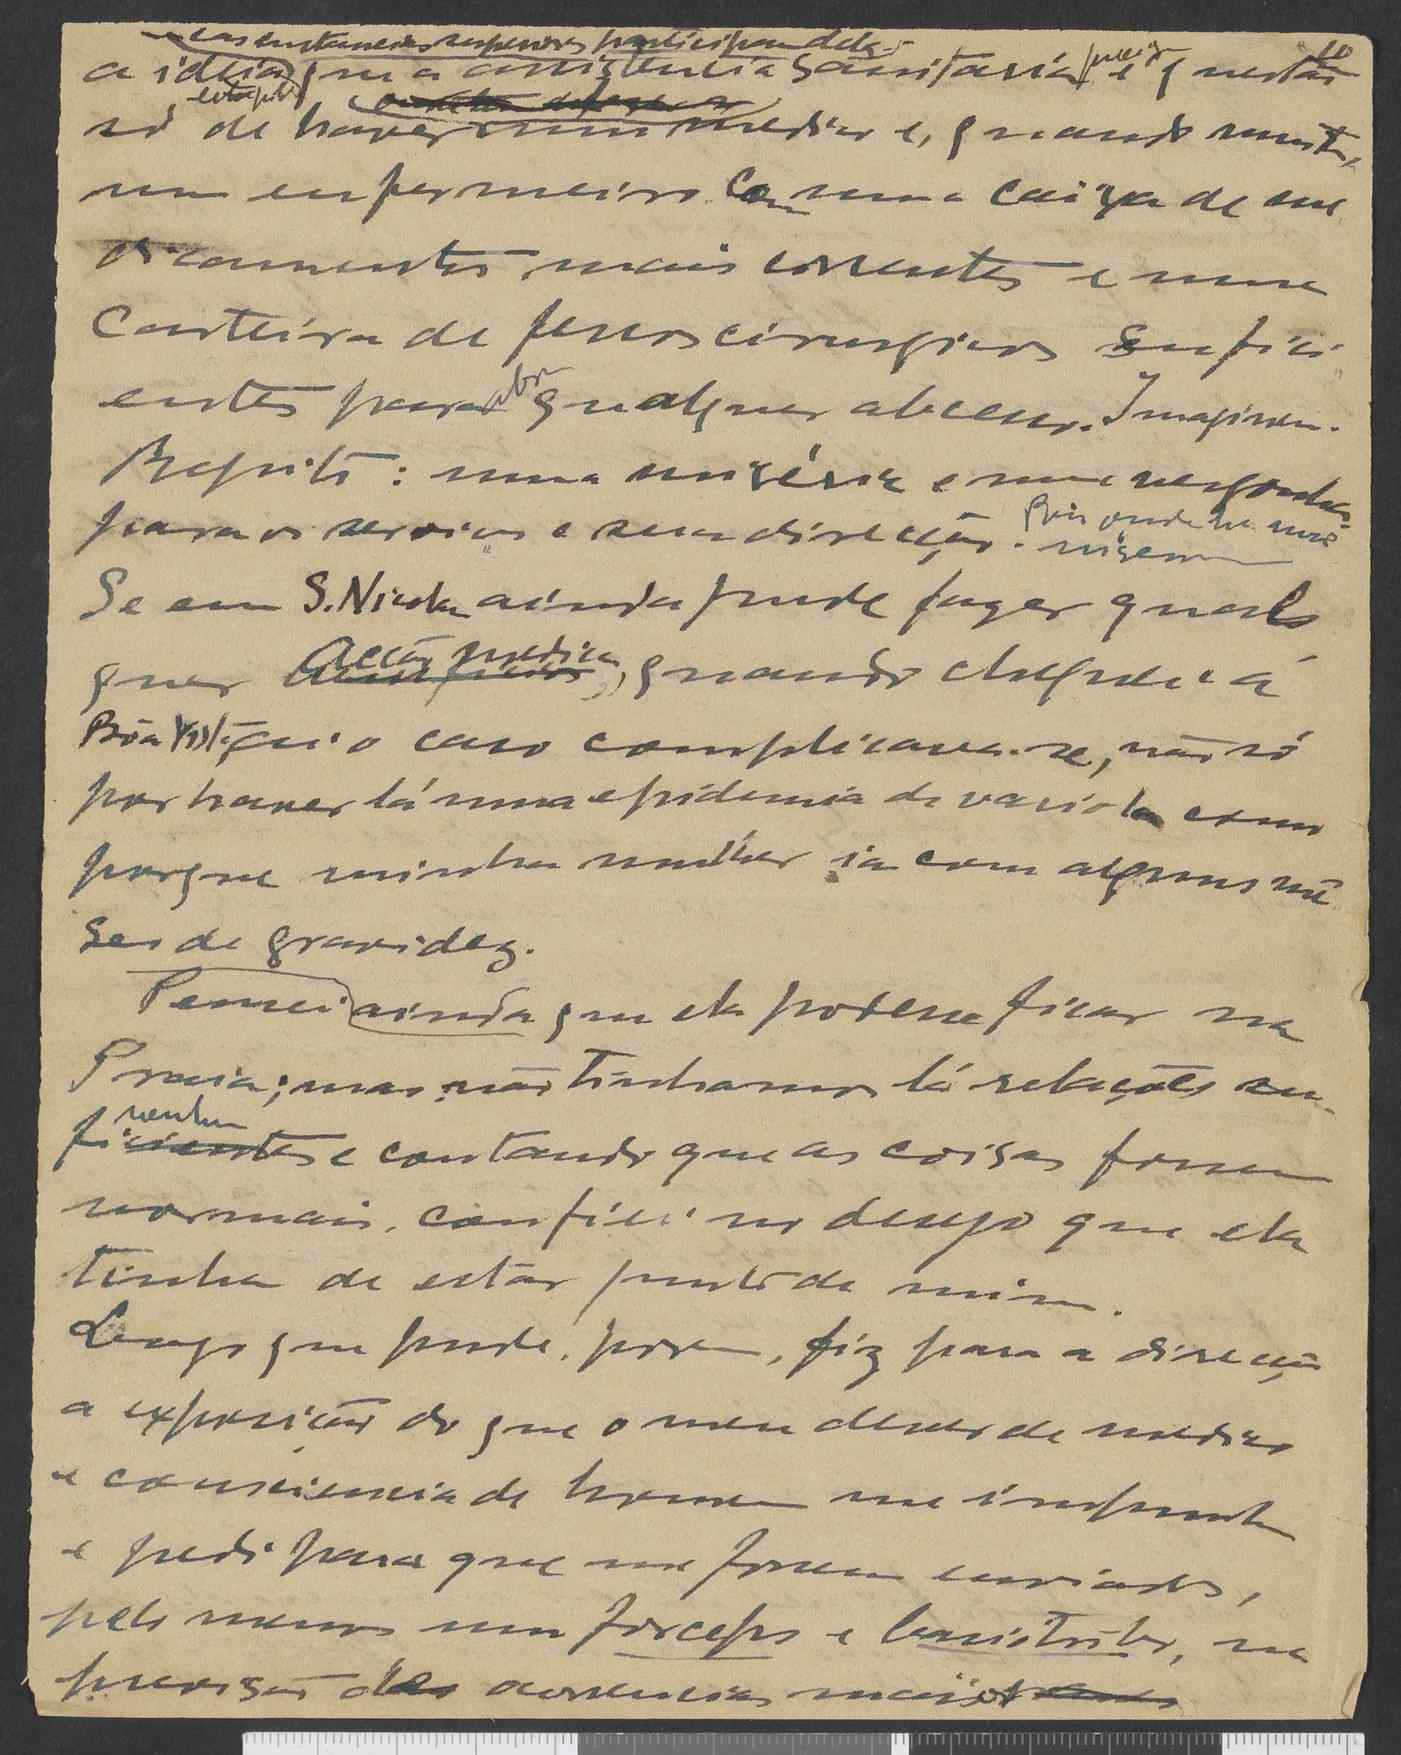 e as instancias superiores participam dela
10
a ideia que a assistencia sanitaria, pois é questão
só de haver um medico e, quando muito,
um enfermeiro com uma caixa de me
dicamentos mais correntes e uma
carteira de ferros cirurgicos sufici
entes para abrir qualquer abcesso. Imaginem.
Repito: uma miséria e uma vergonha
para os serviços e sua direcção.
Se em S. Nicolau ainda pude fazer qual
quer acção medica, quando cheguei á
Bôa Vista, o caso complicava-se, não só
por haver lá uma epidemia de variola como
porque minha mulher ia com alguns mê
ses de gravidez.
Pensei ainda que ela podesse ficar na
Praia; mas não tinhamos lá relações su-
ficientes e contando que as coisas fossem
normais, confiei no desejo que ela
tinha de estar junto de mim.
Logo que pude, porem, fiz para a direcção
a exposição do que o meu dever de medico
e consciencia de homem me impunha
e pedi para que me fossem enviados,
pelo menos um forceps e basiotribo, na
previsão de ocorrencias mais